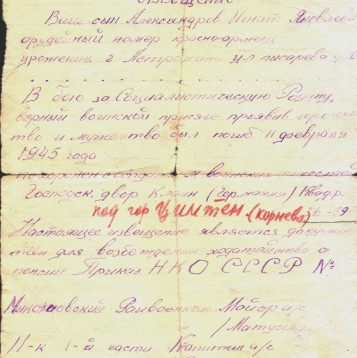 Извещение
Ваш сын Александров Игнат Яковлев
орудейный номер красноармеец
уроженец г. Астрахани ул писарева
В бою за Социалистическую Родину,
верный воинской присяге проявив геройс
тво и мужество был погиб 11 февраля
1945 года
похоронен с отданием воинских почестей
Господск. двор Клейн (Германия)
под гор Цинтен (Корнево)
Настоящее извещение является докумен
том для возбуждения ходатайства о
пенсии Приказ НКО СССР №
Райвоенком Майор а/с
/Матусевич
Н-к 1-й части Капитан а/с